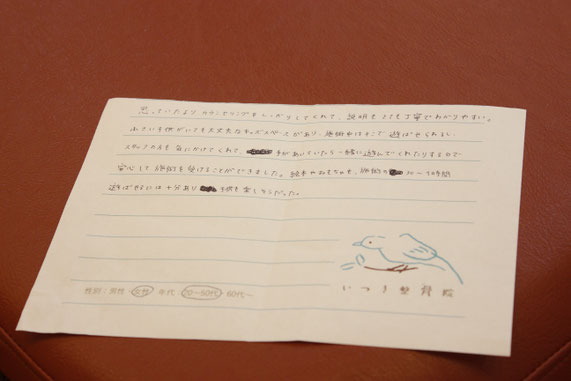 思っていたよりカウンセリングをしっかりしてくれて、説明もとても丁寧でわかりやすい。
小さい子供がいても大丈夫なキッズスペースがあり、施術中はそこで遊ばせられるし
スタッフの方も気にかけてくれて、手があいていたら一緒に遊んでくれたりするので
安心して施術を受けることができました。絵本やおもちゃも、施術の30〜1時間
遊ばせるには十分あり子供も楽しそうだった。
いつき整骨院
性別：男性・女性 年代：20〜50代 60代〜